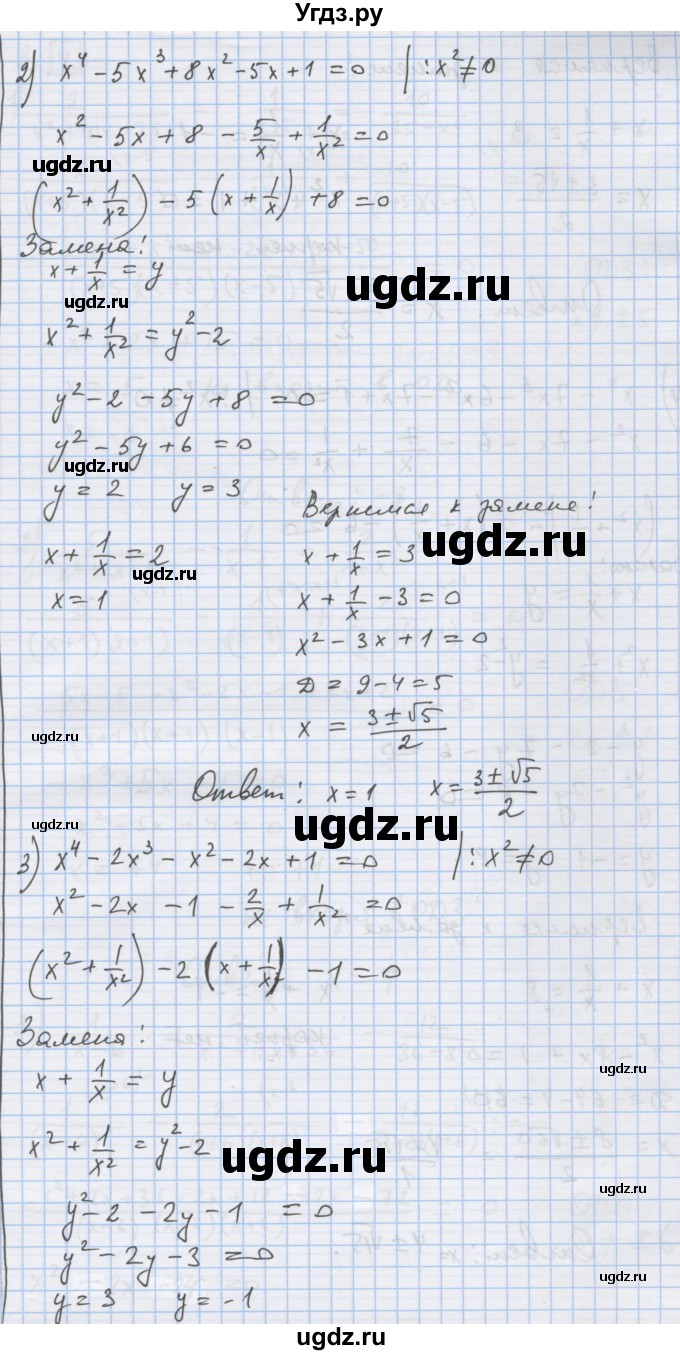 Угдз.ру
2) x⁴ - 5x³ + 8x² - 5x + 1 = 0 | : x² ≠ 0
x² - 5x + 8 - 5/x + 1/x² = 0
ugdz.ru
(x² + 1/x²) - 5(x + 1/x) + 8 = 0
ugdz.ru
Замена:
x + 1/x = y
ugdz.ru
ugdz.ru
x² + 1/x² = y² - 2
y² - 2 - 5y + 8 = 0
ugdz.ru
y² - 5y + 6 = 0
ugdz.ru
y = 2 y = 3
Вернемся к замене:
x + 1/x = 2
ugdz.ru
x = 1
x + 1/x = 3
ugdz.ru
x + 1/x - 3 = 0
x² - 3x + 1 = 0
D = 9 - 4 = 5
ugdz.ru
x = (3 ± √5)/2
Ответ: x = 1 x = (3 ± √5)/2
ugdz.ru
ugdz.ru
3) x⁴ - 2x³ - x² - 2x + 1 = 0 | : x² ≠ 0
x² - 2x - 1 - 2/x + 1/x² = 0
(x² + 1/x²) - 2(x + 1/x²) - 1 = 0
Замена:
x + 1/x = y
ugdz.ru
x² + 1/x² = y² - 2
ugdz.ru
ugdz.ru
y² - 2 - 2y - 1 = 0
y² - 2y - 3 = 0
ugdz.ru
y = 3 y = -1
ugdz.ru